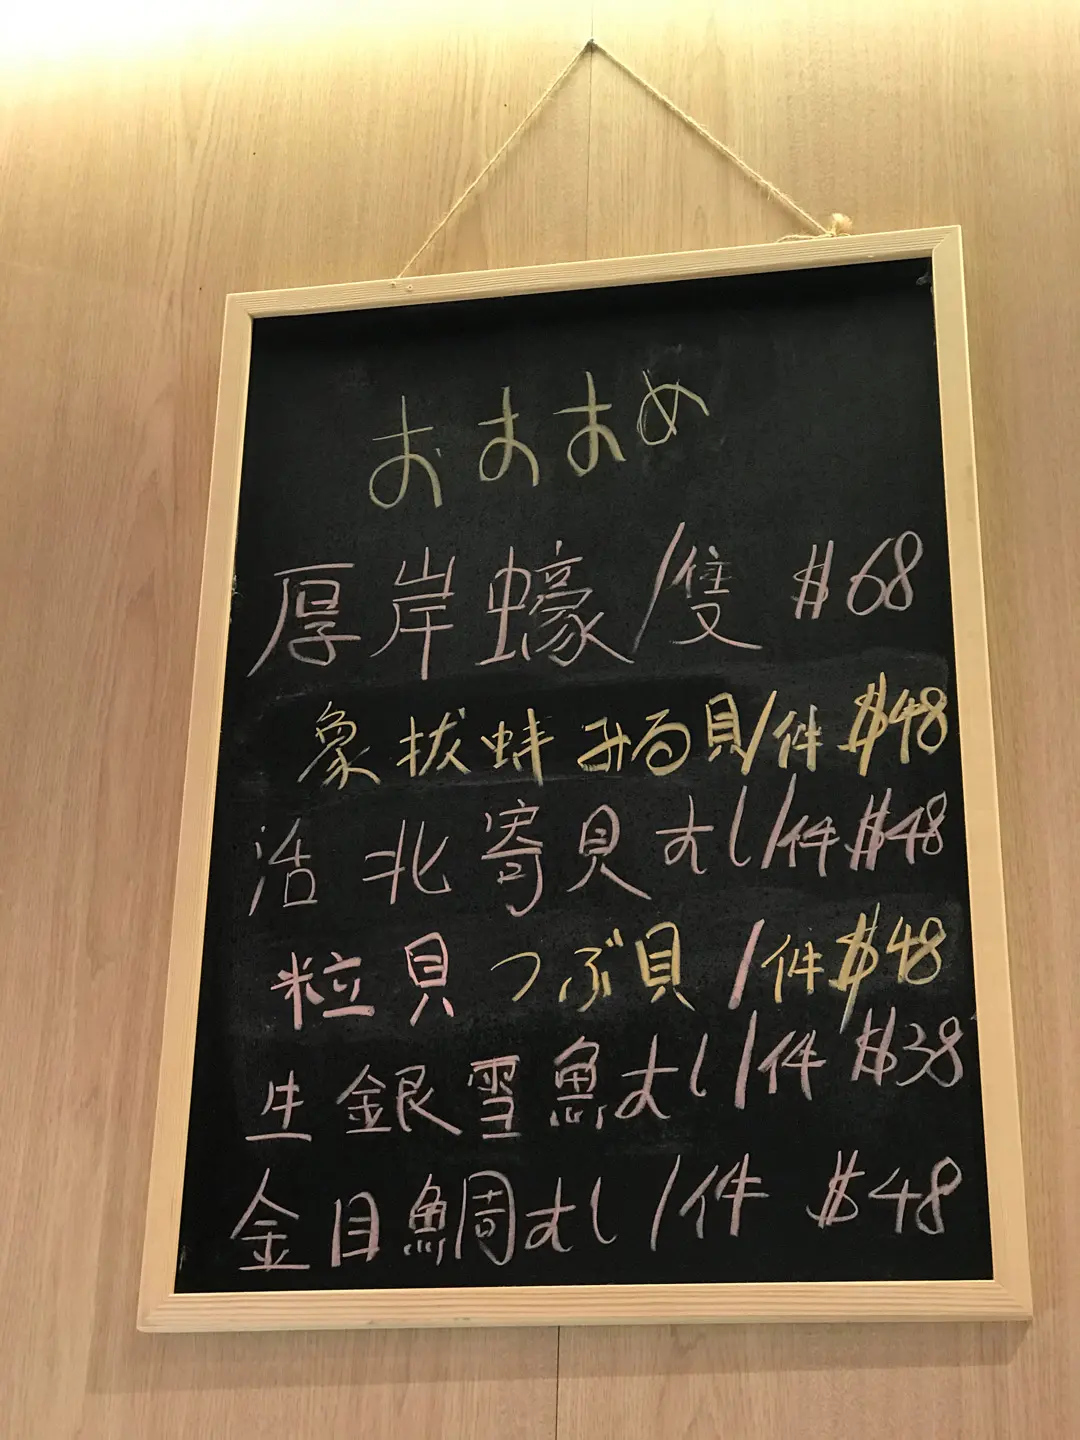 おすすめ
厚岸蠔/隻 $68
象拔蚌みる貝/件 $48
活北寄貝すし/件 $48
粒貝 つぶ貝 /件 $48
生銀雪魚すし/件 $38
金目鯛すし/件 $48